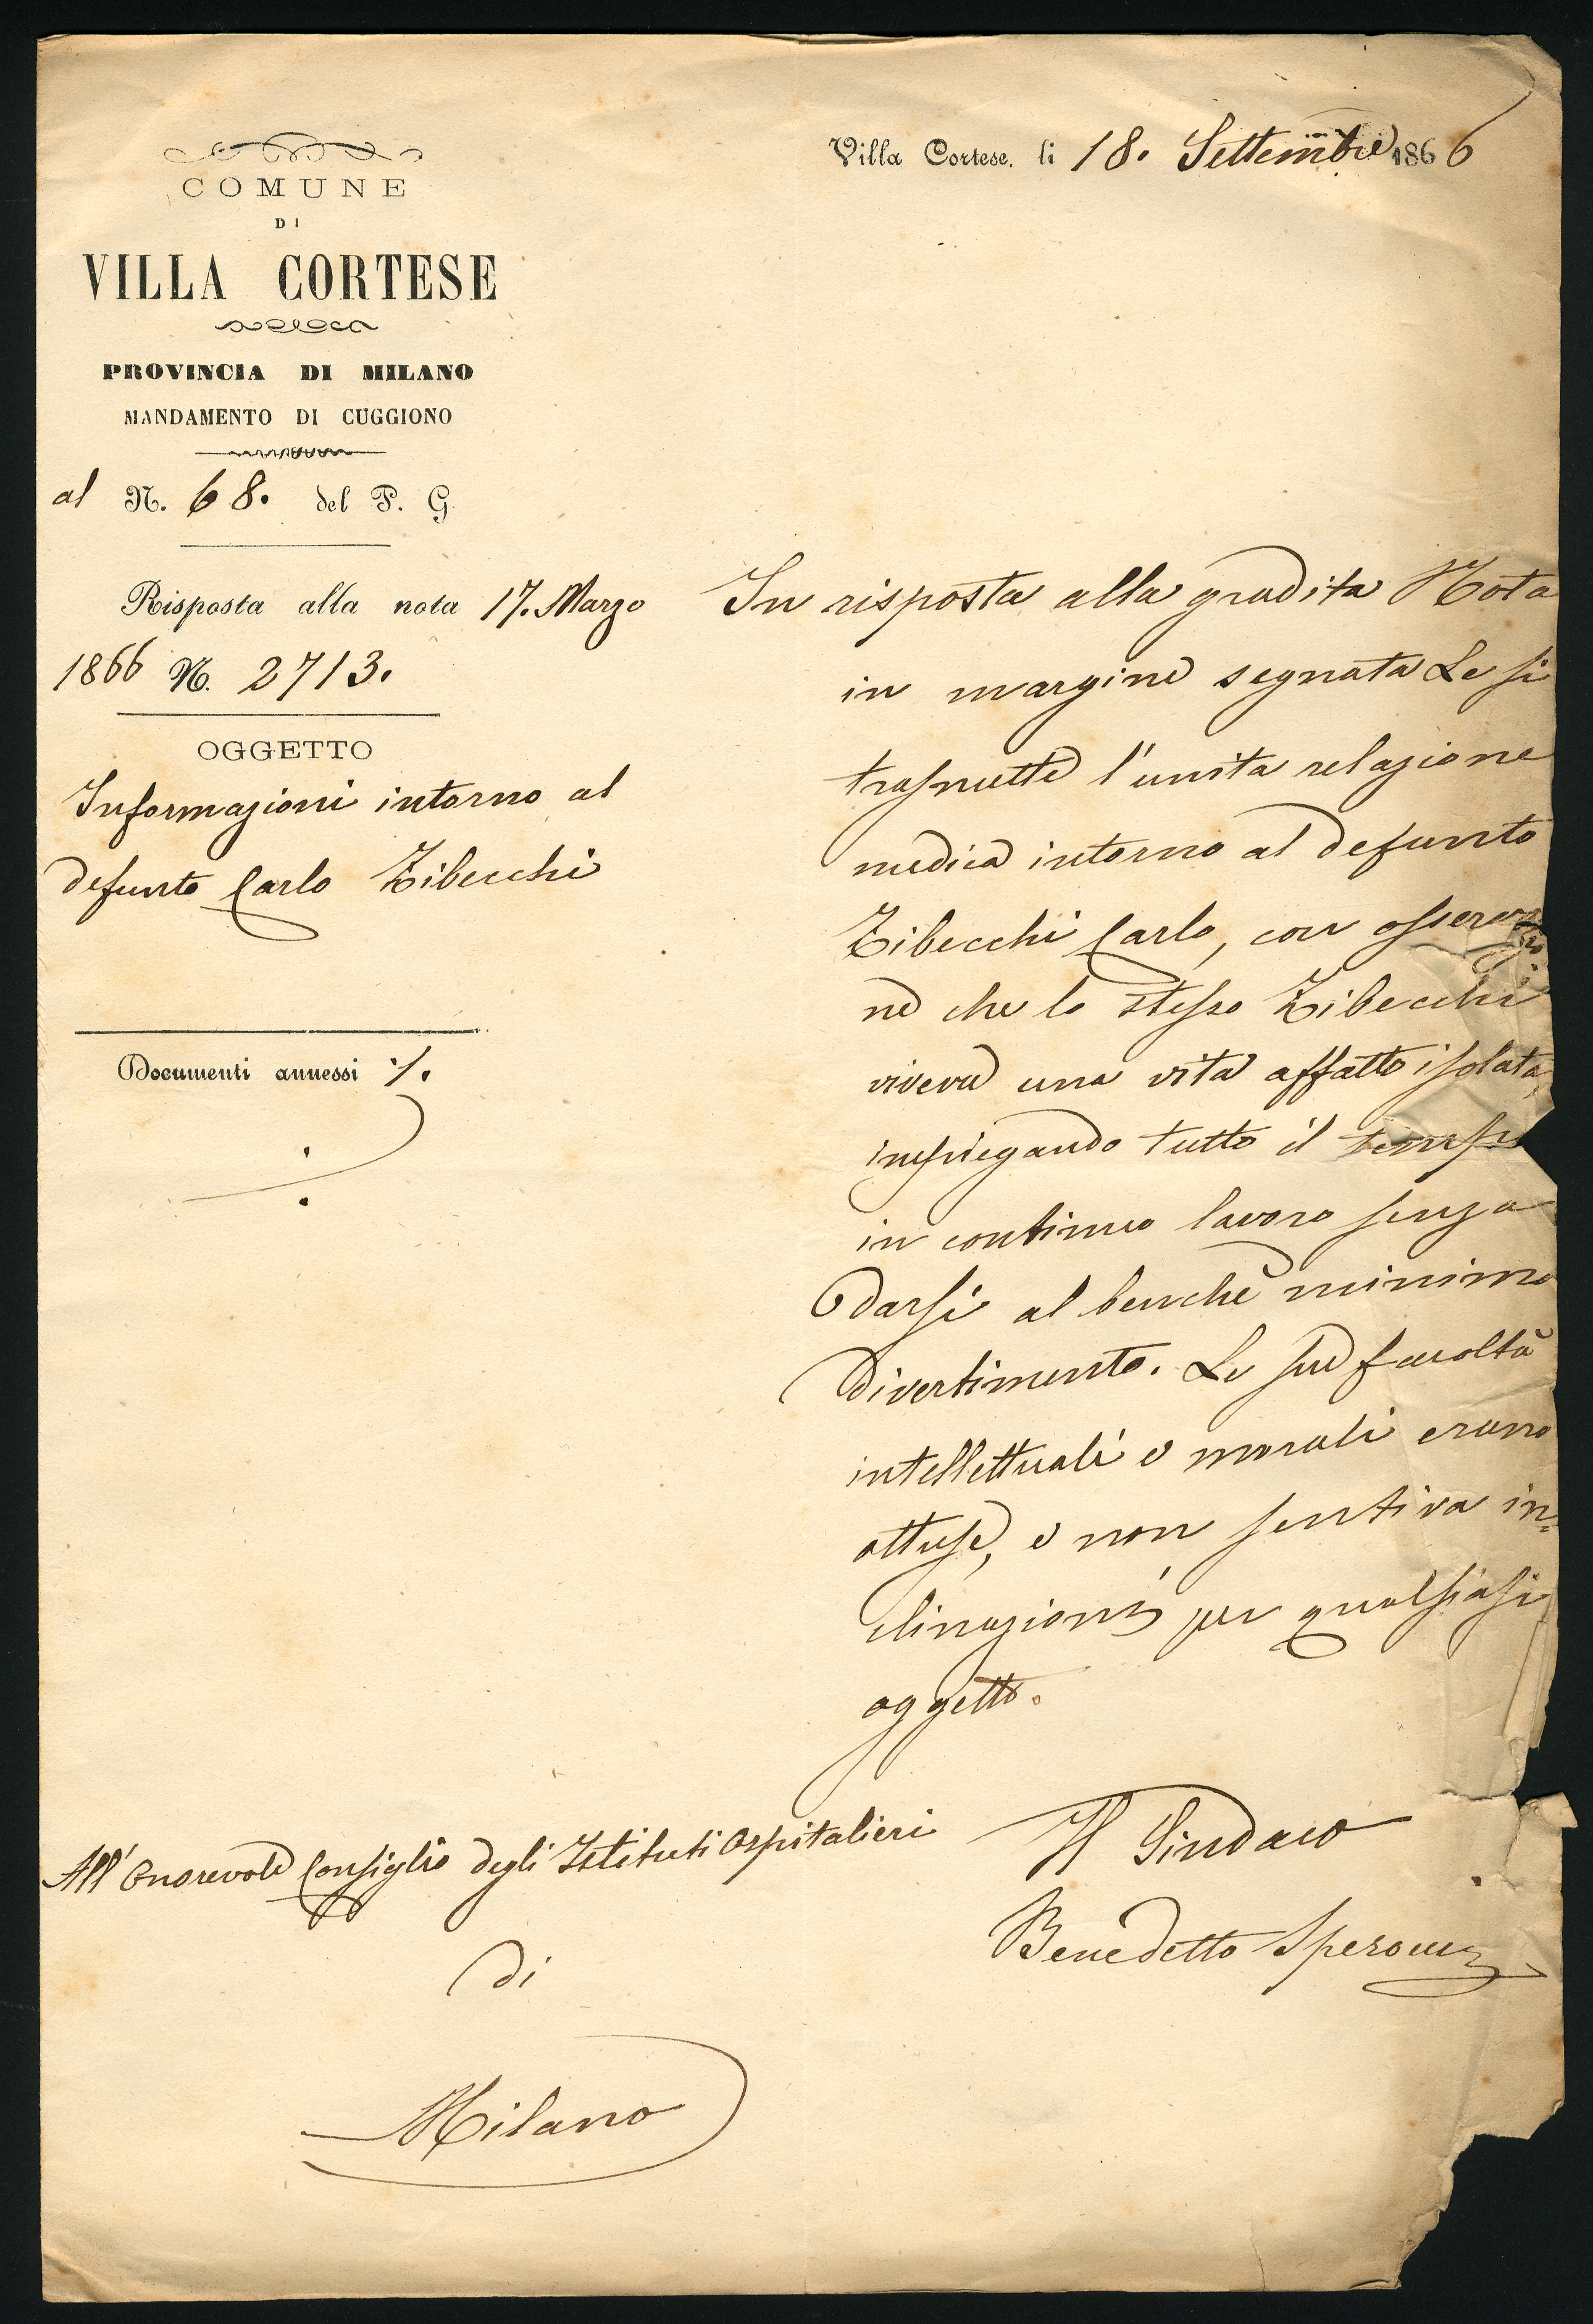 COMUNE
DI
VILLA CORTESE
PROVINCIA DI MILANO
MANDAMENTO DI CUGGIONO
al N. 68. del P. G.
Risposta alla nota 17. Marzo
1866 N. 2713.
OGGETTO
Informazioni intorno al
defunto Carlo Zibecchi
Documenti annessi ·/.
Villa Cortese, li 18. Settembre 1866
In risposta alla gradita Nota
in margine segnata Le si
trasmette l'unita relazione
medica intorno al defunto
Zibecchi Carlo, con osservazio
ne che lo stesso Zibecchi
viveva una vita affatto isolata,
impiegando tutto il tempo
in continuo lavoro senza
darsi al benchè minimo
divertimento. Le sue facoltà
intellettuali e morali erano
ottuse, e non sentiva in=
clinazioni per qualsiasi
oggetto.
Il Sindaco
Benedetto Speroni
All' Onorevole Consiglio degli Istituti Ospitalieri
di
Milano